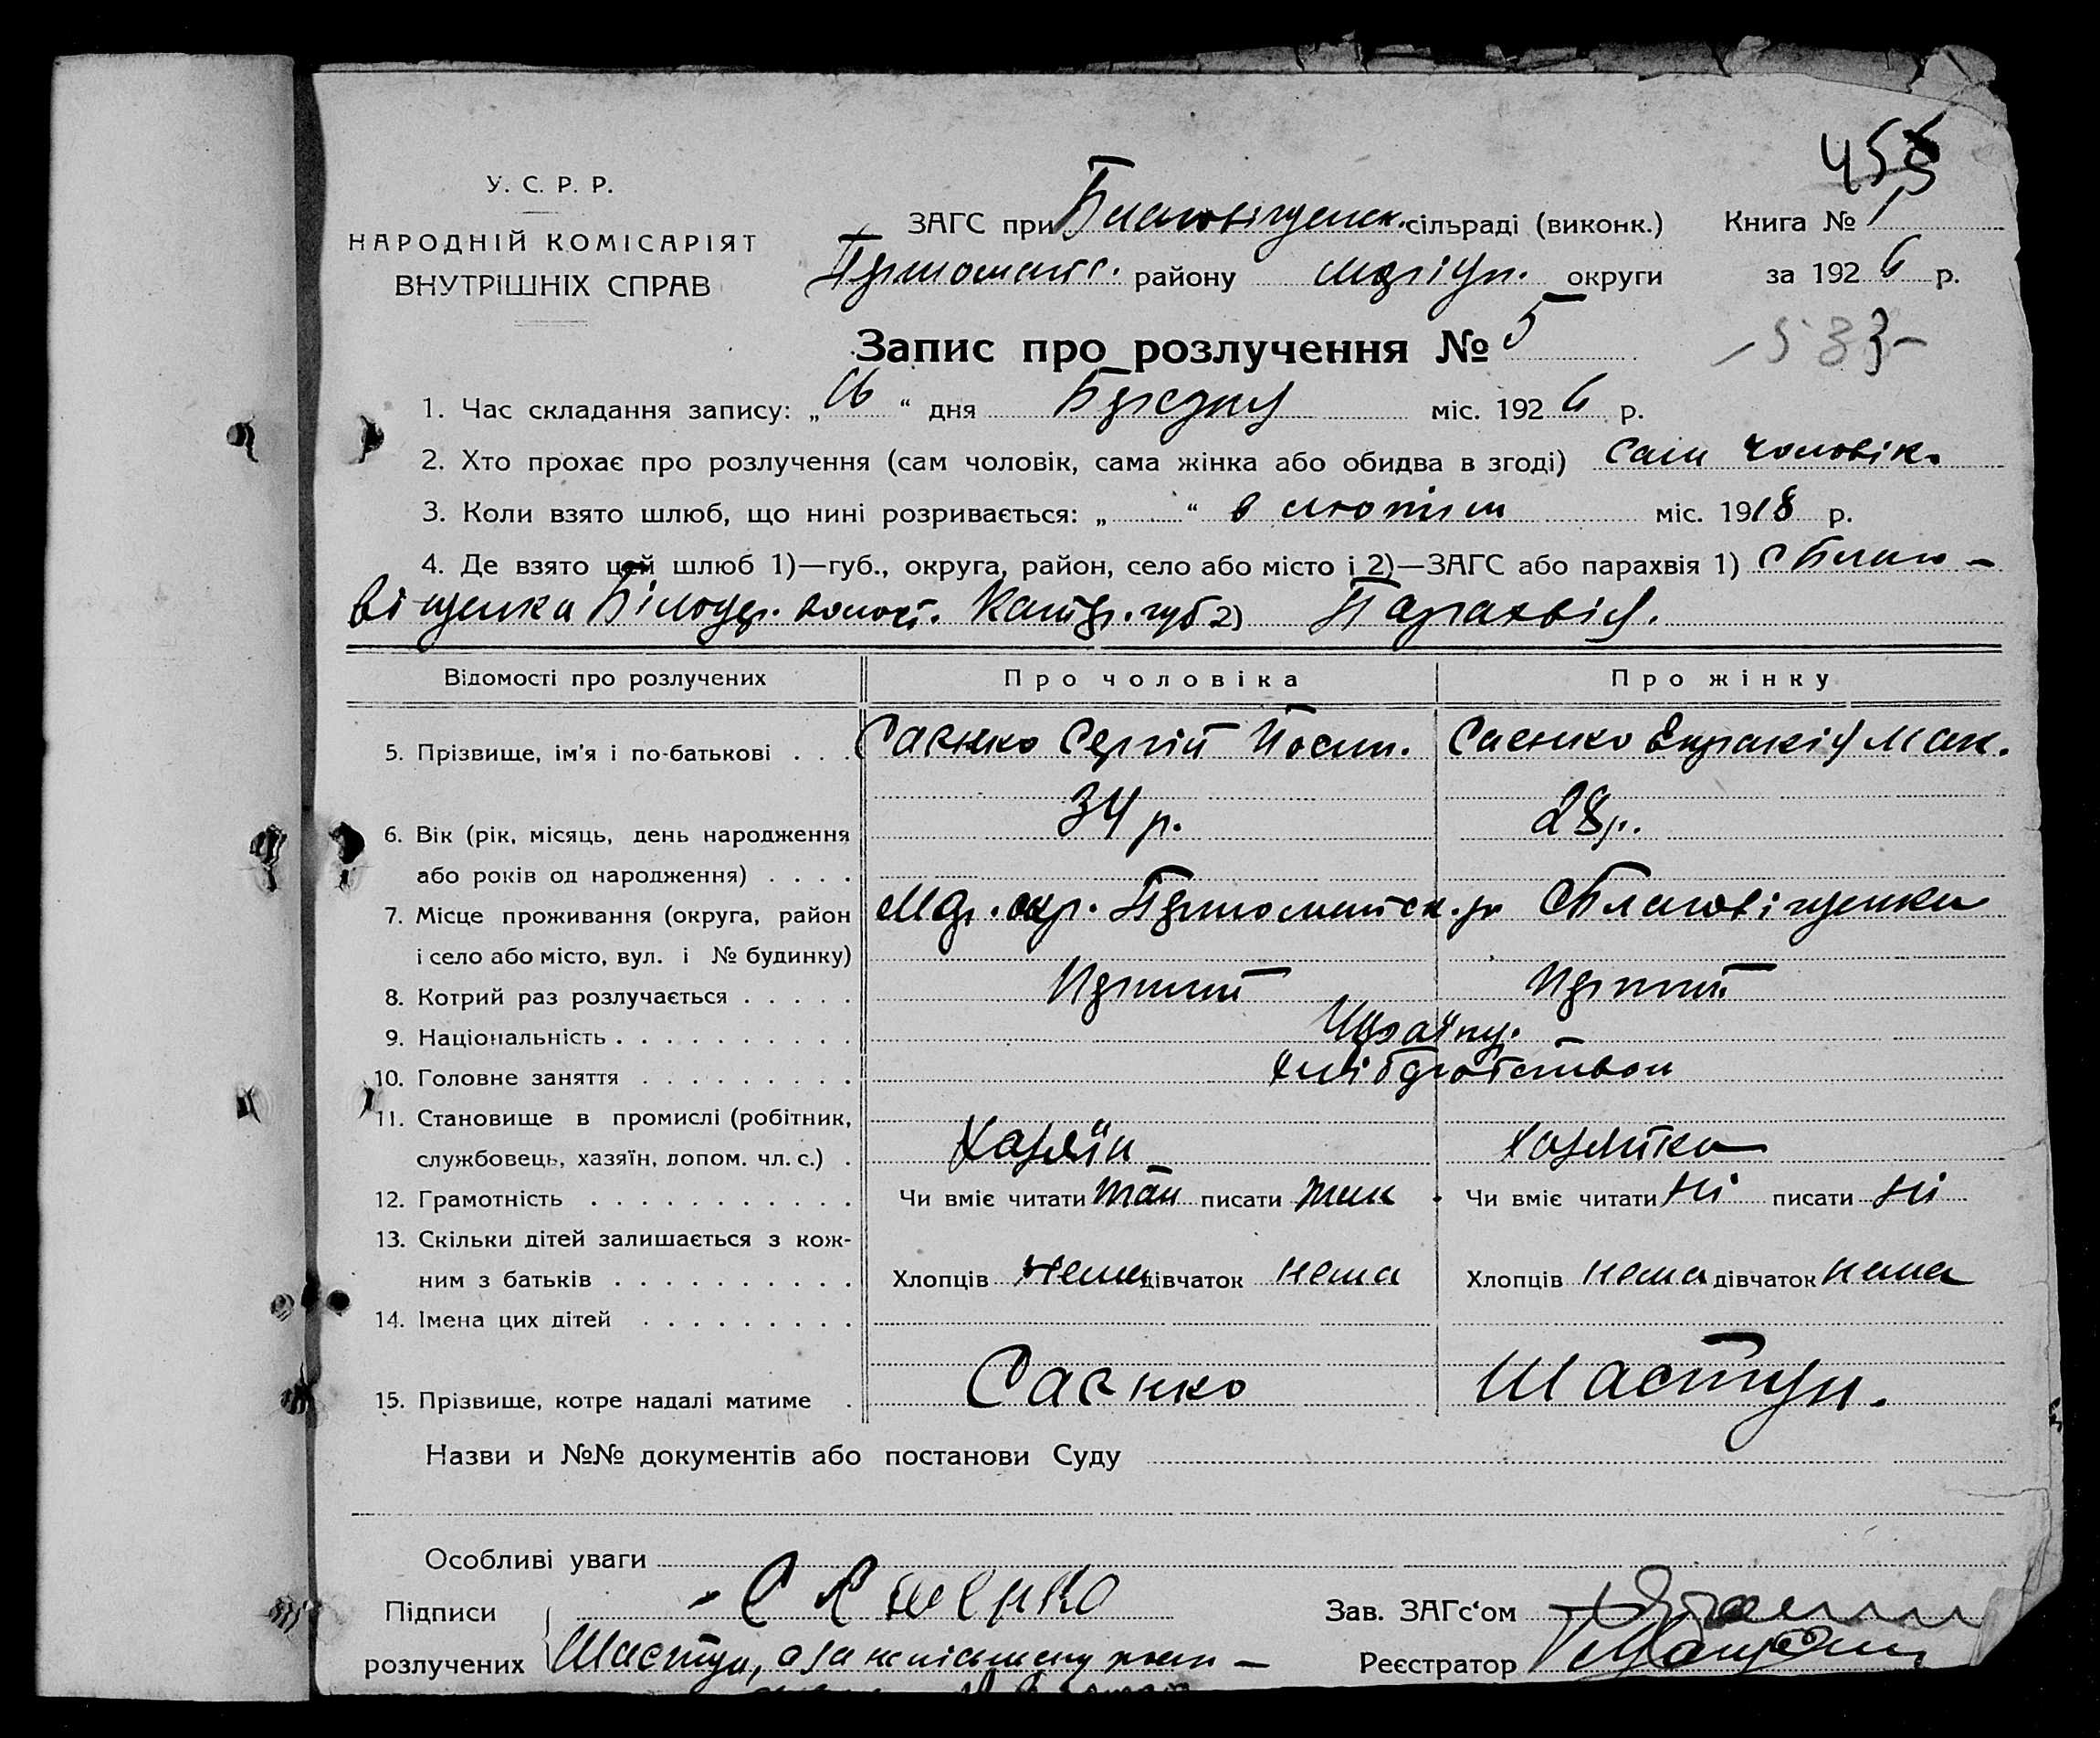 455
У. С. Р. Р.
НАРОДНІЙ КОМІСАРІЯТ
ВНУТРІШНІХ СПРАВ
ЗАГС при Благовіщенск. сільраді (виконк.) Книга № 1
Першомайс. району Маріуп. округи за 1926 р.
533
Запис про розлучення № 5
1. Час складання запису: „16“ дня Березня міс. 1926 р.
2. Хто прохає про розлучення (сам чоловік, сама жінка або обидва в згоді) сам чоловік.
3. Коли взято шлюб, що нині розривається: „ “ в лютім міс. 1918 р.
4. Де взято цей шлюб 1)—губ., округа, район, село або місто і 2)—ЗАГС або парахвія 1) с Благо-
віщенка Білоцер. волост. Катер. губ 2) Парахвія.
Відомості про розлучених Про чоловіка Про жінку
5. Прізвище, ім'я і по-батькові . . . Саєнко Сергій Йосип. Саєнко Евракія Мак.
6. Вік (рік, місяць, день народження 34 р. 28 р.
або років од народження) . . . .
7. Місце проживання (округа, район Мар. окр. Першомайск. р С Благовіщенка
і село або місто, вул. і № будинку)
8. Котрий раз розлучається . . . . . Перший Перший
9. Національність . . . . . . . . . . Україну.
10. Головне заняття . . . . . . . . . хліборобством
11. Становище в промислі (робітник,
службовець, хазяїн, допом. чл. с.) . Хазяїн Хазяйка
12. Грамотність . . . . . . . . . . . Чи вміє читати так писати так Чи вміє читати ні писати ні
13. Скільки дітей залишається з кож-
ним з батьків . . . . . . . . . . Хлопців нема дівчаток нема Хлопців нема дівчаток нема
14. Імена цих дітей . . . . . . . . .
15. Прізвище, котре надалі матиме . Саєнко Шастун.
Назви и №№ документів або постанови Суду
Особливі уваги
Підписи С Саенко Зав. ЗАГс'ом
розлучених Шастун, а за неписьмену Реєстратор